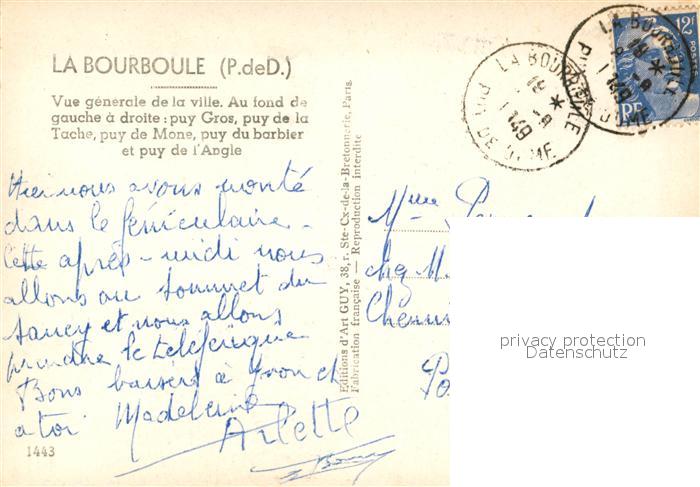 LA BOURBOULE (P.deD.)
Vue générale de la ville. Au fond de
gauche à droite : puy Gros, puy de la
Tache, puy de Mone, puy du barbier
et puy de l'Angle
Hier nous avons monté
dans le féniculaire -
Cette après-midi nous
allons au sommet du
sancy et nous allons
prendre le téléférique
Bons baisers à Yvon et
à toi Madeleine
Arlette
1443
Editions d'Art GUY, 38, r. Ste-Cx-de-la-Bretonnerie, Paris
Fabrication française — Reproduction interdite
LA BOURBOULE
PUY DE DOME
18 *
1949
LA BOURBOULE
PUY DE DOME
18 *
1949
12F
POSTES
RF
Mme
chez M
privacy protection
Datenschutz